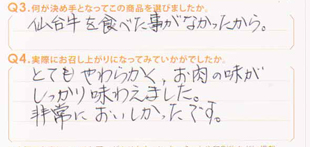 Q3.何が決め手となってこの商品を選びましたか。
仙台牛を食べた事がなかったから。
Q4.実際にお召し上がりになってみていかがでしたか。
とてもやわらかく、お肉の味が
しっかり味わえました。
非常においしかったです。